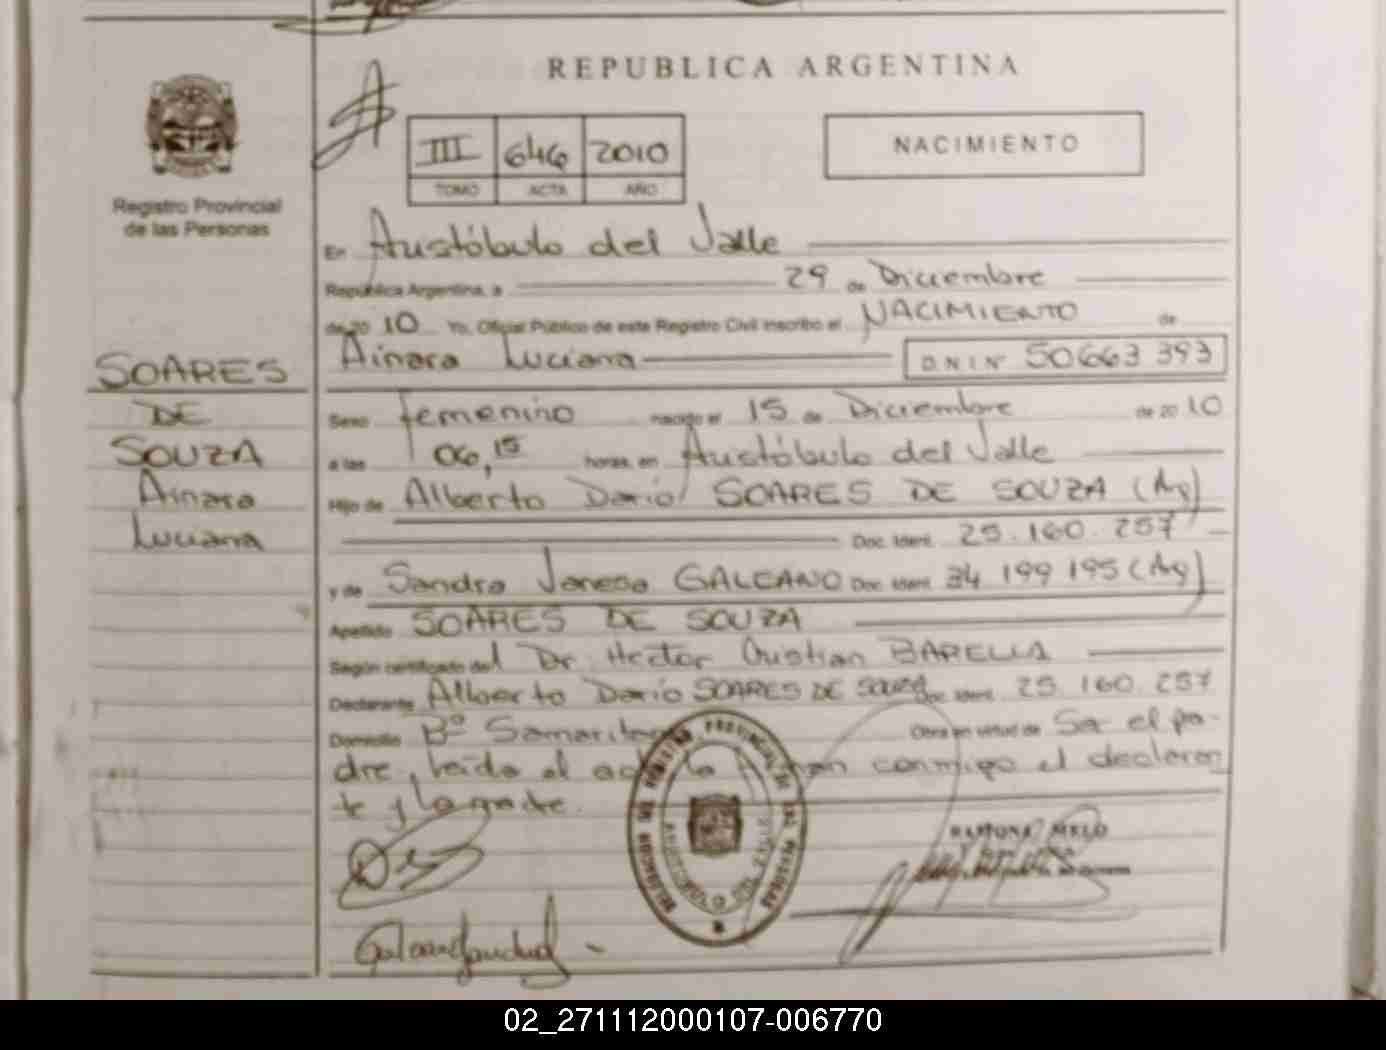 REPUBLICA ARGENTINA
III 646 2010
TOMO ACTA AÑO
NACIMIENTO
Registro Provincial
de las Personas
En Aristóbulo del Valle
República Argentina, a 29 de Diciembre
de 20 10 Yo, Oficial Público de este Registro Civil inscribo el NACIMIENTO de
Ainara Luciana D N I N° 50663 393
SOARES
DE
SOUZA
Ainara
Luciana
Sexo femenino nacido el 15 de Diciembre de 20 10
a las 06,15 horas en Aristóbulo del Valle
Hijo de Alberto Dario SOARES DE SOUZA (Arg)
Doc. Ident. 25.160.257
y de Sandra GALEANO Doc. Ident. 34 199 195 (Arg)
Apellido SOARES DE SOUZA
Según certificado del Dr. Hector Cristian BARELLA
Declarante Alberto Dario SOARES DE SOUZA Doc. Ident. 25 160 257
Domicilio B° Obra en virtud de Ser el pa-
dre, leída el conmigo el declaran
te y la madre.
REGISTRO PROVINCIAL DE LAS PERSONAS
ARISTOBULO DEL VALLE
RAMONA MELO
02_271112000107-006770